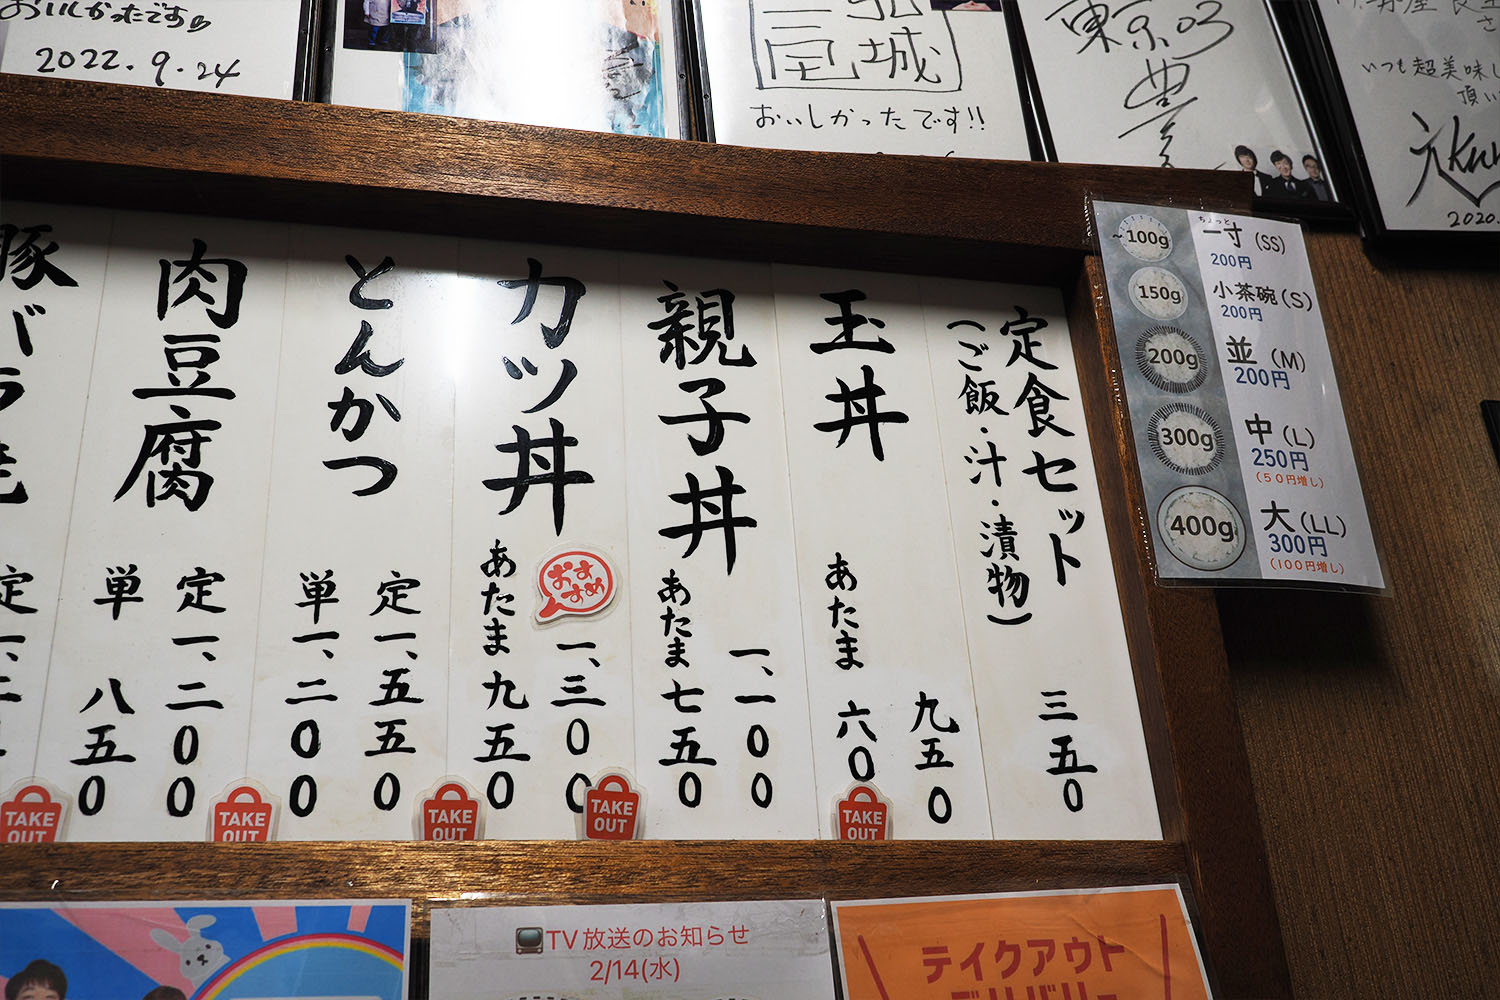 おいしかったです
2022.9.24
城
おいしかったです!!
東京03
いつも超美味し
頂い
2020.
定食セット
(ご飯・汁・漬物)
三五0
玉丼
九五0
あたま 六0
親子丼
一、一00
あたま 七五0
カツ丼
おすすめ
一、三00
あたま 九五0
とんかつ
定 一、五五0
単 一、二00
肉豆腐
定 一、二00
単 八五0
豚バラ
定 一、二
TAKE OUT
TAKE OUT
TAKE OUT
TAKE OUT
TAKE OUT
~100g
ちょっと
一寸 (SS)
200円
150g
小茶碗 (S)
200円
200g
並 (M)
200円
300g
中 (L)
250円
(50円増し)
400g
大 (LL)
300円
(100円増し)
TV放送のお知らせ
2/14(水)
テイクアウト
デリバリー